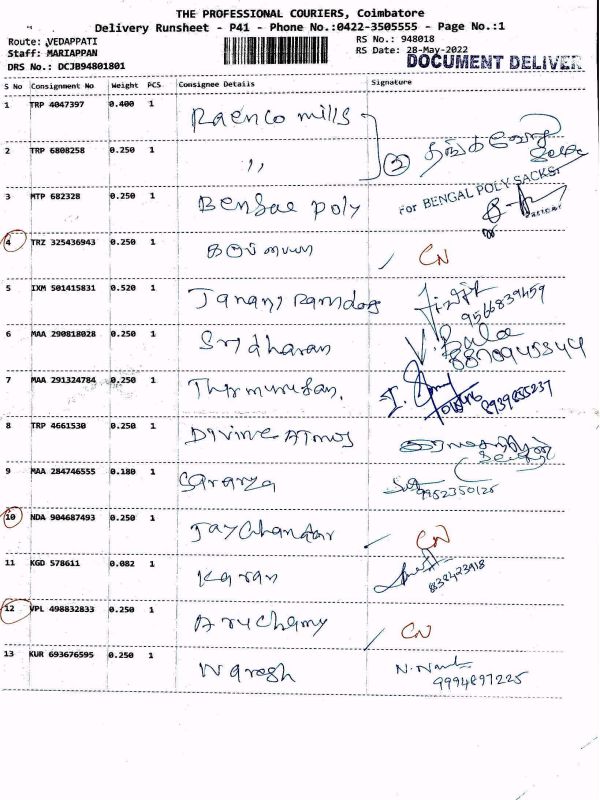 THE PROFESSIONAL COURIERS, Coimbatore
Delivery Runsheet - P41 - Phone No.:0422-3505555 - Page No.:1
Route: VEDAPPATI
RS No.: 948018
Staff: MARIAPPAN
RS Date: 28-May-2022
DRS No.: DCJB94801801
DOCUMENT DELIVER
S No Consignment No Weight PCS Consignee Details Signature
1 TRP 4047397 0.400 1 Raenco mills
2 TRP 6808258 0.250 1 ,, 2
3 MTP 682328 0.250 1 Bengal poly For BENGAL POLY SACKS
4 TRZ 325436943 0.250 1 CN
5 IXM 501415831 0.520 1 Janani Ramdas 9566839459
6 MAA 290818028 0.250 1 Sridharan V. Bala 8870945344
7 MAA 291324784 0.250 1 Thirmurugan. 8939855237
8 TRP 4661530 0.250 1 Divine Atmos
9 MAA 284746555 0.180 1 Saranya 9952350125
10 NDA 904687493 0.250 1 Jaychandar CN
11 KGD 578611 0.082 1 Karan 838423918
12 VPL 498832833 0.250 1 Aruchamy CN
13 KUR 693676595 0.250 1 Naresh 9994897225